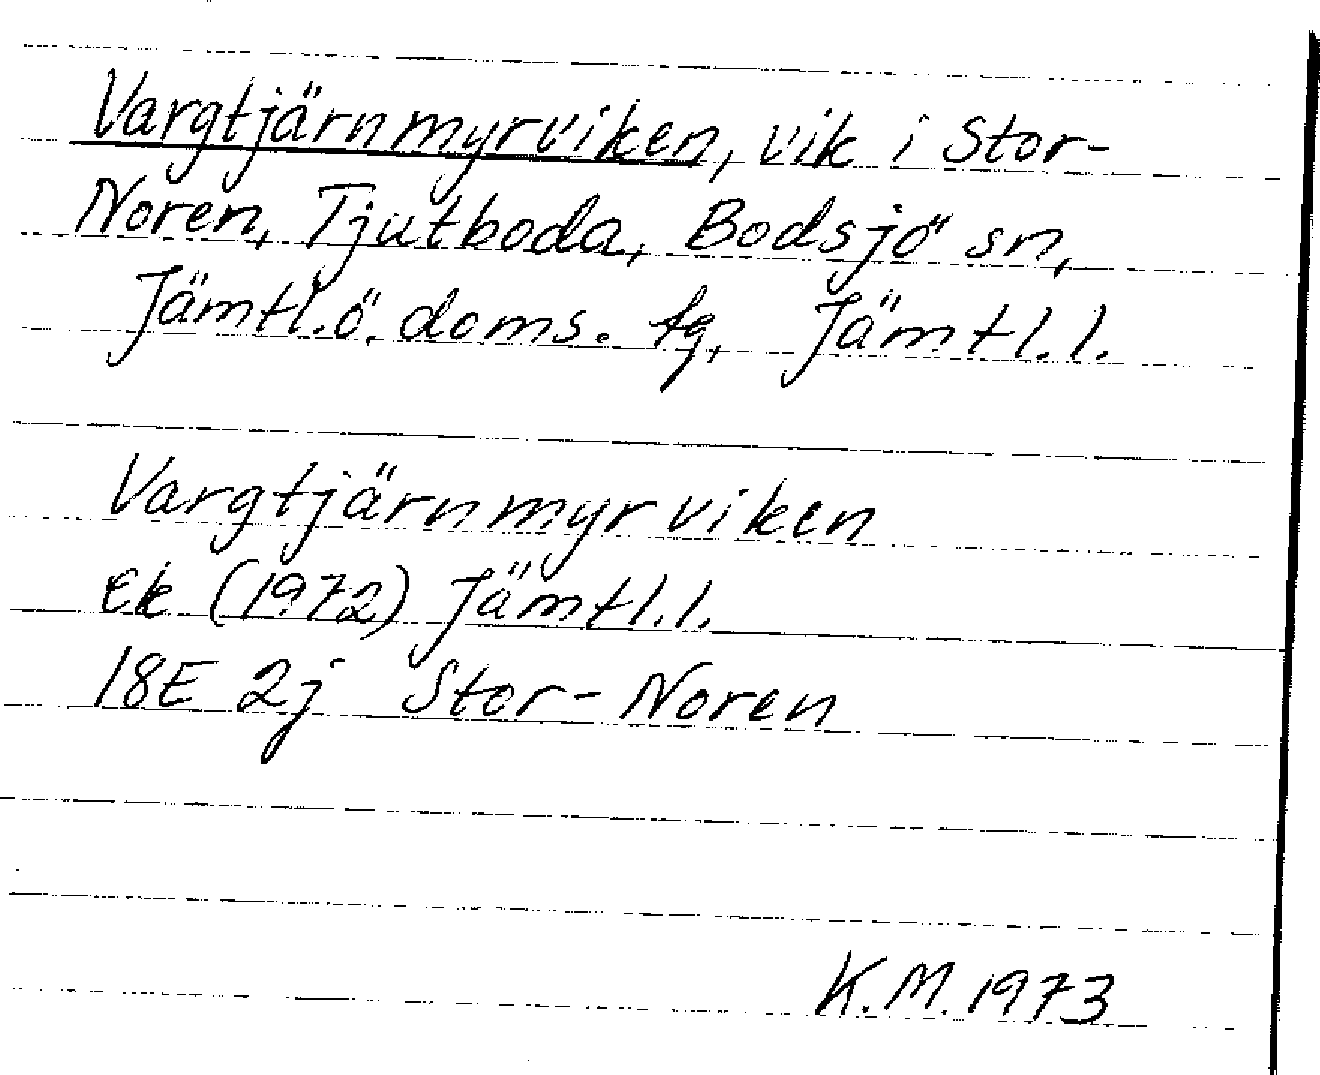 Vargtjärnmyrviken, vik i Stor-
Noren, Tjutboda, Bodsjö sn,
Jämtl.ö. doms. tg, Jämtl.l.
Vargtjärnmyrviken
Ek (1972) Jämtl.l.
18E 2j Stor-Noren
K.M. 1973